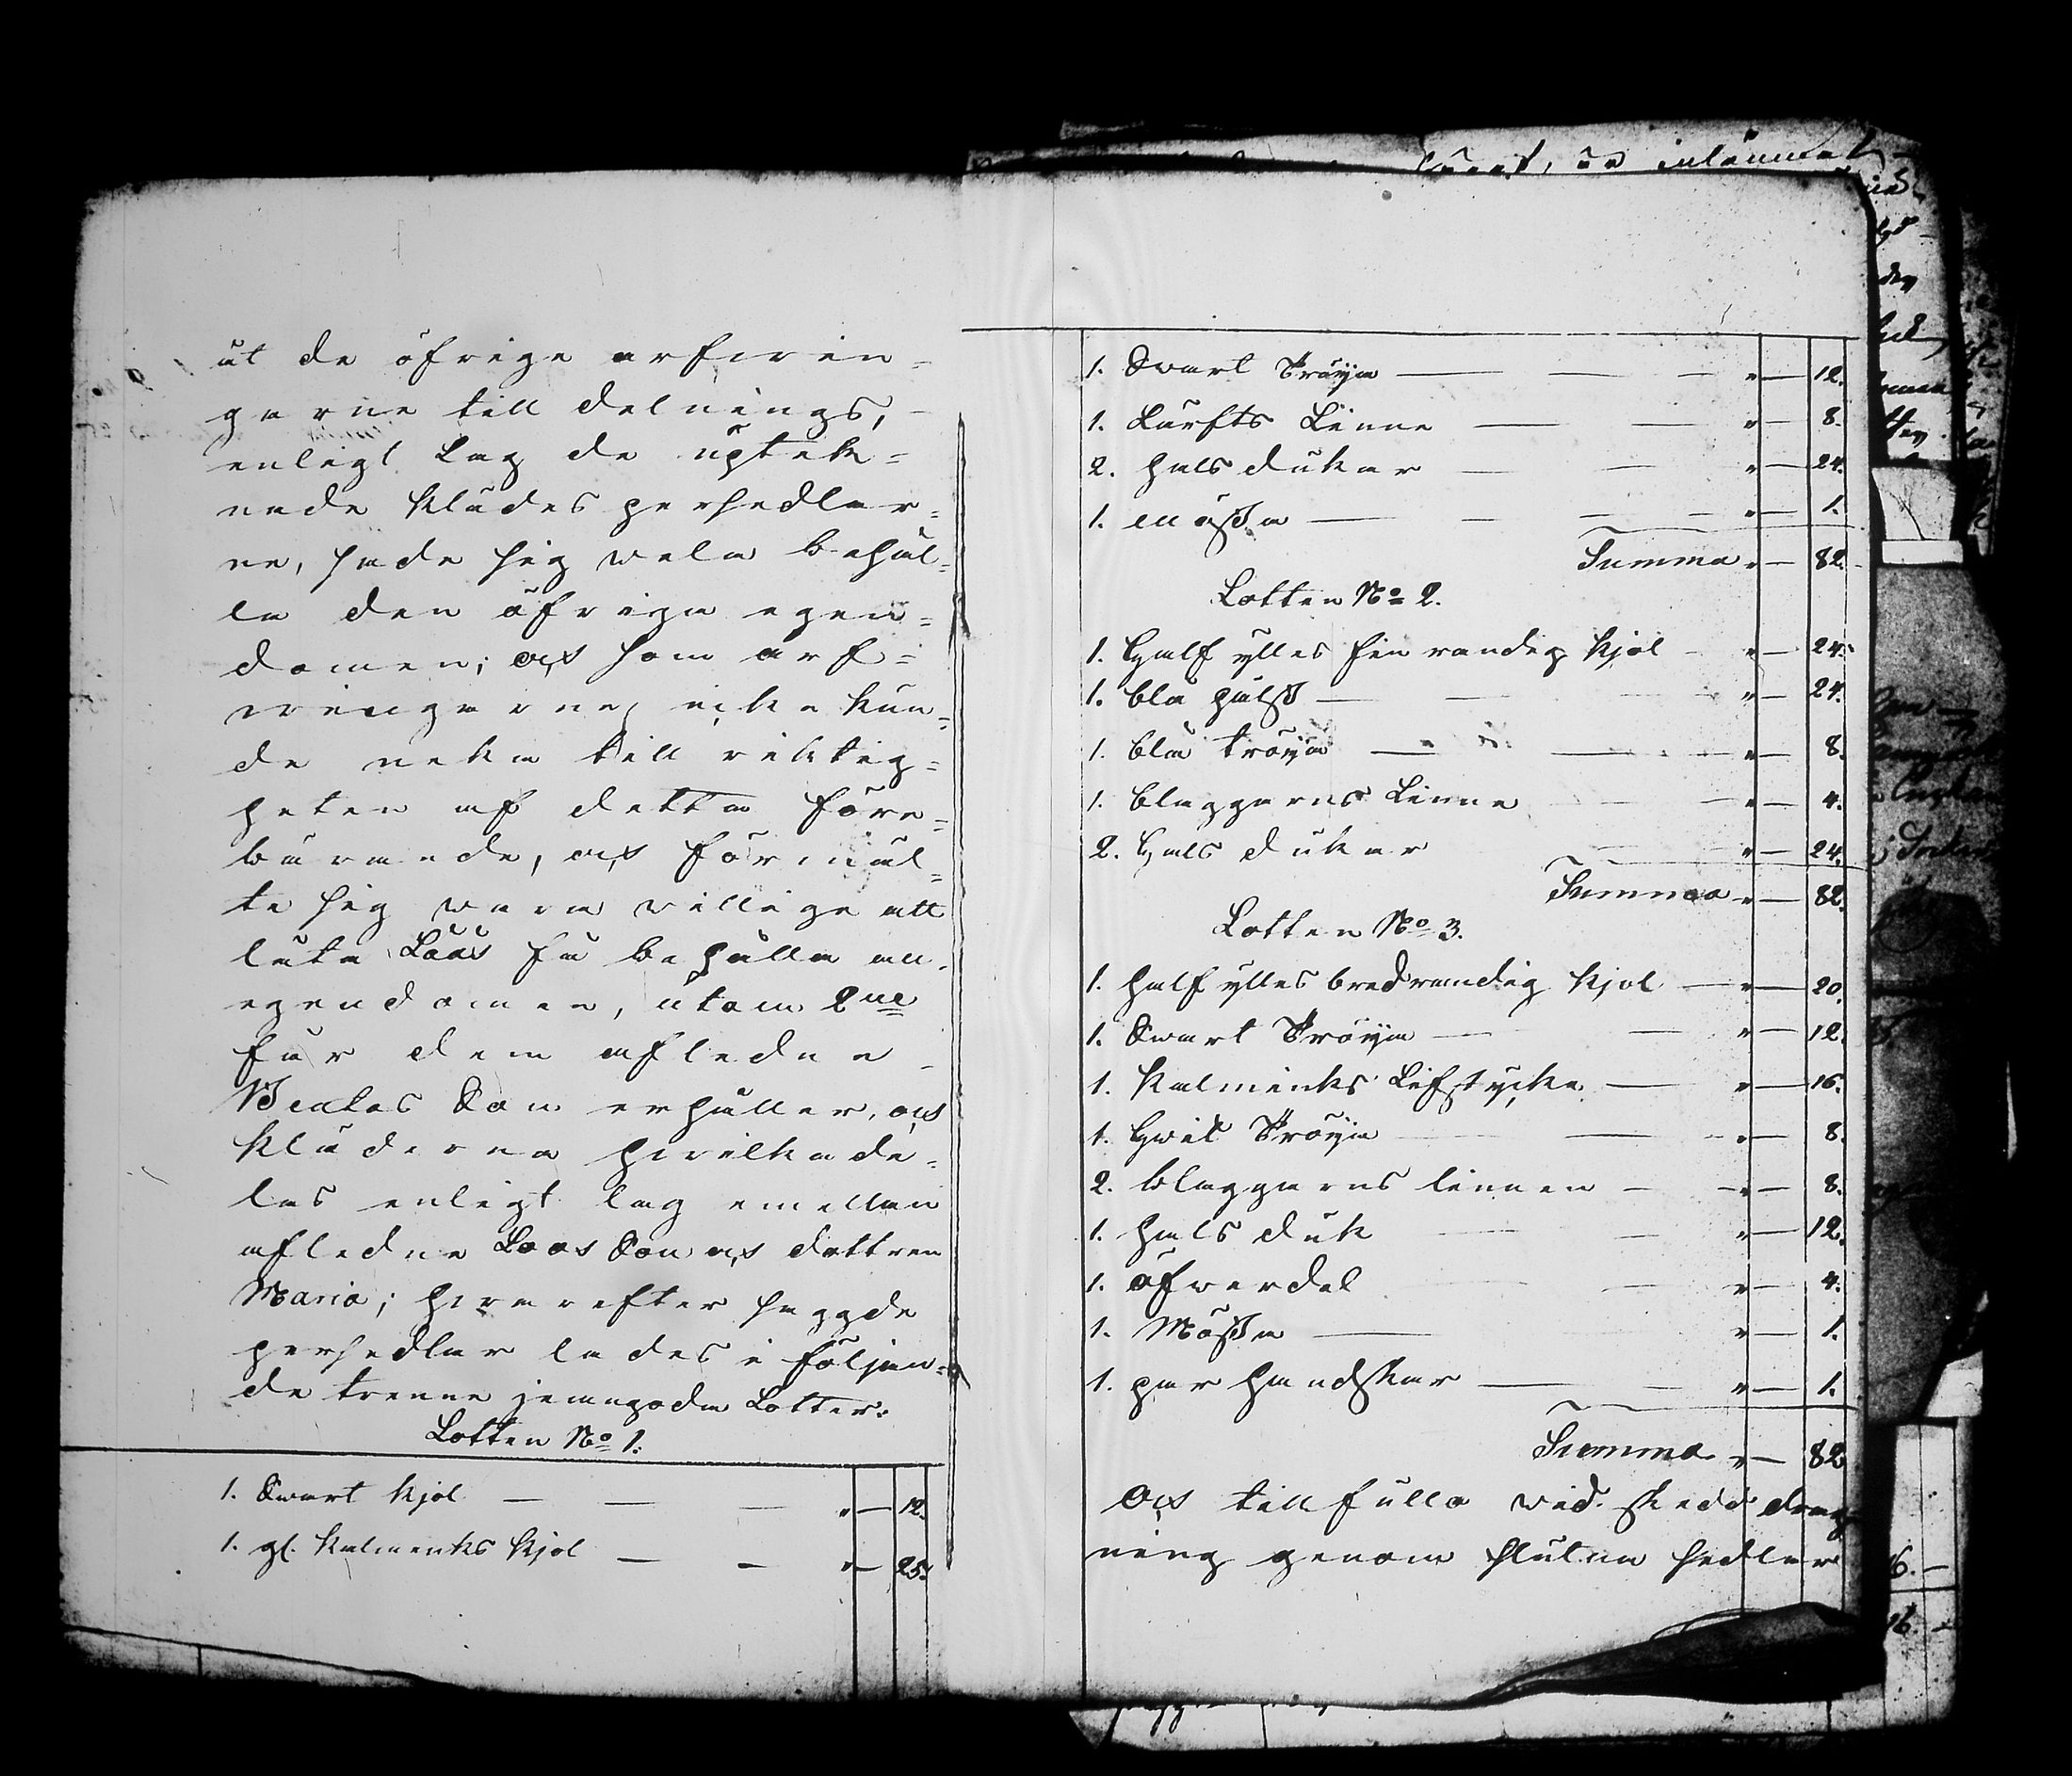 åt de öfrige arfwin=
garne till delnings,
enligt Lag de uptek=
nade klädes persedlar=
ne, sade sig wela behål=
la den öfriga egen=
domen; och som arf=
wingarne icke kun=
de neka till riktig=
heten af detta före=
bärande, och förmäl=
te sig wara willige att
låta Lars få behålla all
egendomen, utom 2ne
får dem aflednа
Beatas Son erhåller, och
kläderna hwilka de=
las enligt lag emellan
aflednе Lars Son och dottren
Maria; hwarefter sagde
persedlar lades i följan=
de trenne jemngoda Lotter:
Lotten No 1.
1. Swart kjol — — — " — 12.
1. gl. Kalmenks kjol — — " — 25.
1. Swart Tröya — — — " — 12.
1. Lärfts Linne — — " — 8.
2. halsdukar — — " — 24.
1. mössa — — — — " — 1.
Summa " — 82.
Lotten No 2.
1. Half ylles fin randig kjol — " — 24.
1. blå päls — — — " — 24.
1. blå tröya — — — " — 8.
1. blaggarns Linne — — " — 4.
2. Hals dukar — — " — 24.
Summa " — 82.
Lotten No 3.
1. half ylles bredrandig kjol — " — 20.
1. Swart Tröya — — " — 12.
1. Kalminks Lifstycke — " — 16.
1. Hwit Tröya — — — " — 8.
2. blaggarns linnen — — " — 8.
1. hals duk — — " — 12.
1. öfwerdel — — " — 4.
1. Mössa — " — 1.
1. par handskar — — " — 1.
Summa " — 82
Och tillfullo wid skedd drag
ning genom slutna sedlar